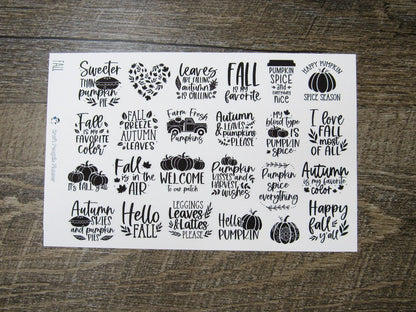 FALL
Sweeter
THAN
pumpkin
PIE
leaves
ARE FALLING
autumn
IS CALLING
FALL
is my
favorite
PUMPKIN
SPICE
and
everything
nice
HAPPY PUMPKIN
SPICE SEASON
Fall
IS MY
FAVORITE
color
FALL
BREEZE
AUTUMN
LEAVES
Farm Fresh
Pumpkins
Autumn
& LEAVES
& pumpkins
PLEASE
my
blood type
IS
PUMPKIN
SPICE
I love
FALL
MOST
OF ALL
IT'S FALL Y'ALL
Fall
is in the
AIR
WELCOME
to our patch
PUMPKIN
KISSES and
HARVEST
wishes
Pumpkin
spice
everything
Autumn
is my favorite
COLOR
Autumn
SKIES
and pumpkin
PIES
Hello
FALL
LEGGINGS
Leaves
& Lattes
PLEASE
Hello
PUMPKIN
Happy
fall
y'all